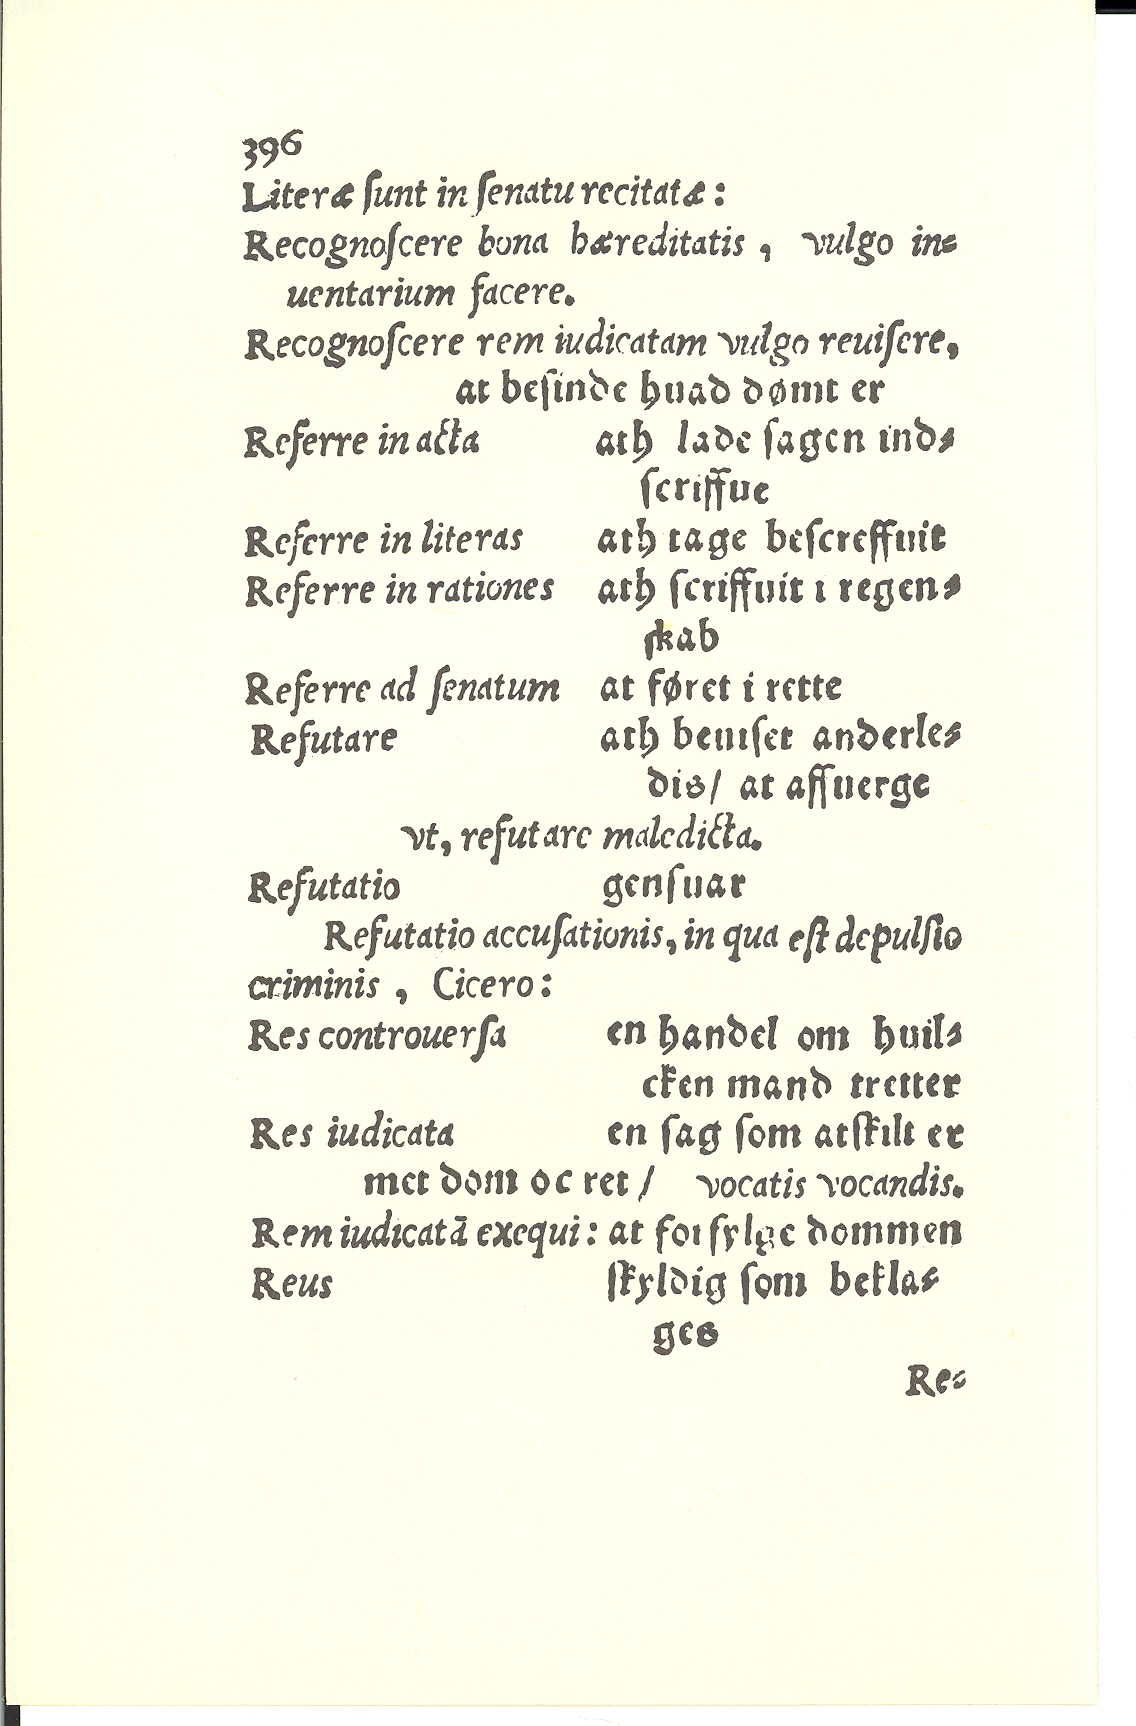 396
Literæ ſunt in ſenatu recitatæ:
Recognoſcere bona hæreditatis, vulgo in-
uentarium facere.
Recognoſcere rem iudicatam vulgo reuiſere,
at beſinde huad dømt er
Referre in acta ath lade ſagen ind-
ſcriffue
Referre in literas ath tage beſcreffuit
Referre in rationes ath ſcriffuit i regen-
ſkab
Referre ad ſenatum at føret i rette
Refutare ath beuiſet anderle-
dis/ at affuerge
vt, refutare maledicta.
Refutatio genſuar
Refutatio accuſationis, in qua eſt depulſio
criminis, Cicero:
Res controuerſa en handel om huil-
cken mand tretter
Res iudicata en ſag ſom atſkilt er
met dom oc ret/ vocatis vocandis.
Rem iudicatā exequi: at forfylge dommen
Reus ſkyldig ſom bekla-
ges
Re-